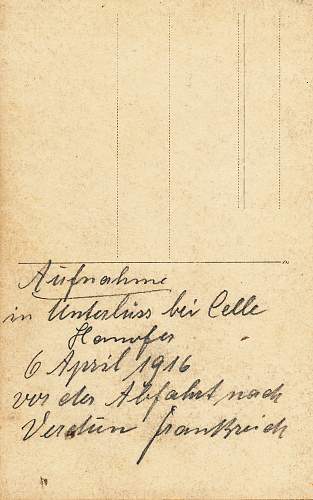 Aufnahme
in Unterlüss bei Celle
Hanofer
6 April 1916
vor der Abfahrt nach
Verdun frankreich